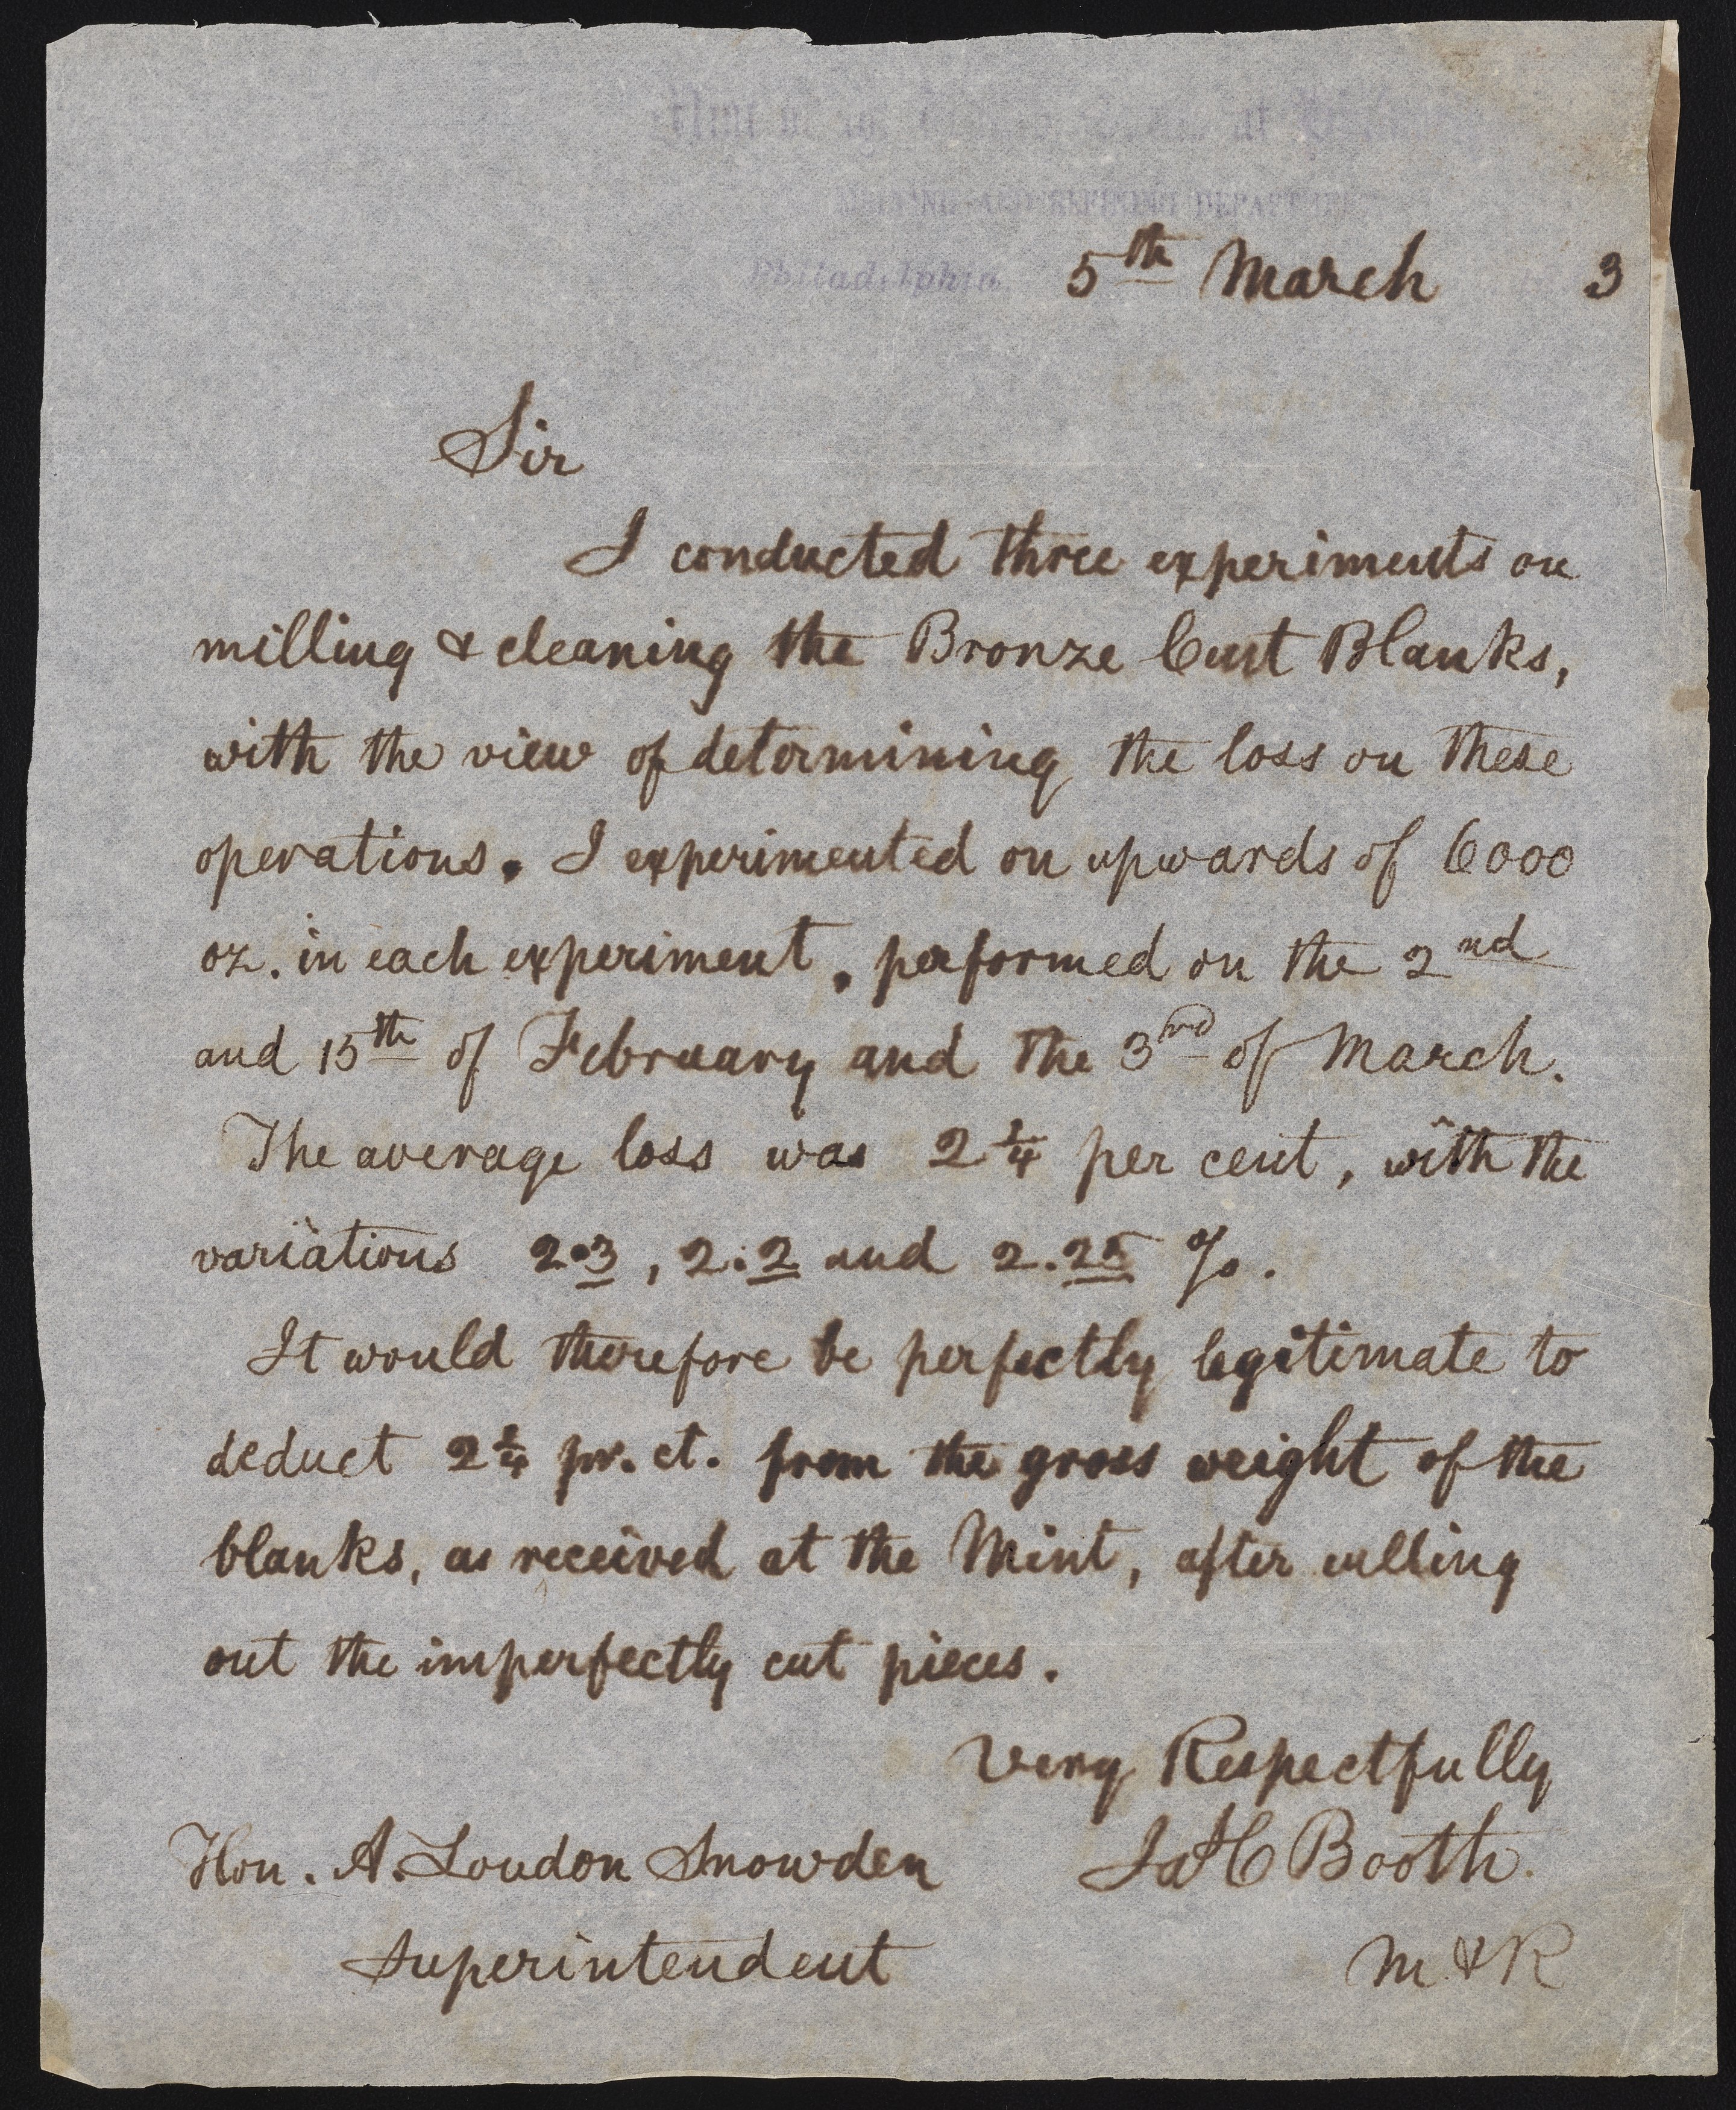 Mint of the United States at Philadelphia
MELTING AND REFINING DEPARTMENT
Philadelphia, 5th March 3
Sir
I conducted three experiments on
milling & cleaning the Bronze Cent Blanks,
with the view of determining the loss on these
operations. I experimented on upwards of 6000
oz. in each experiment, performed on the 2nd
and 15th of February and the 3rd of March.
The average loss was 2 1/4 per cent, with the
variations 2.3, 2.2 and 2.25 %.
It would therefore be perfectly legitimate to
deduct 2 1/4 pr. ct. from the gross weight of the
blanks, as received at the Mint, after culling
out the imperfectly cut pieces.
Very Respectfully
Hon. A. Loudon Snowden Ja H Booth.
Superintendent M & R